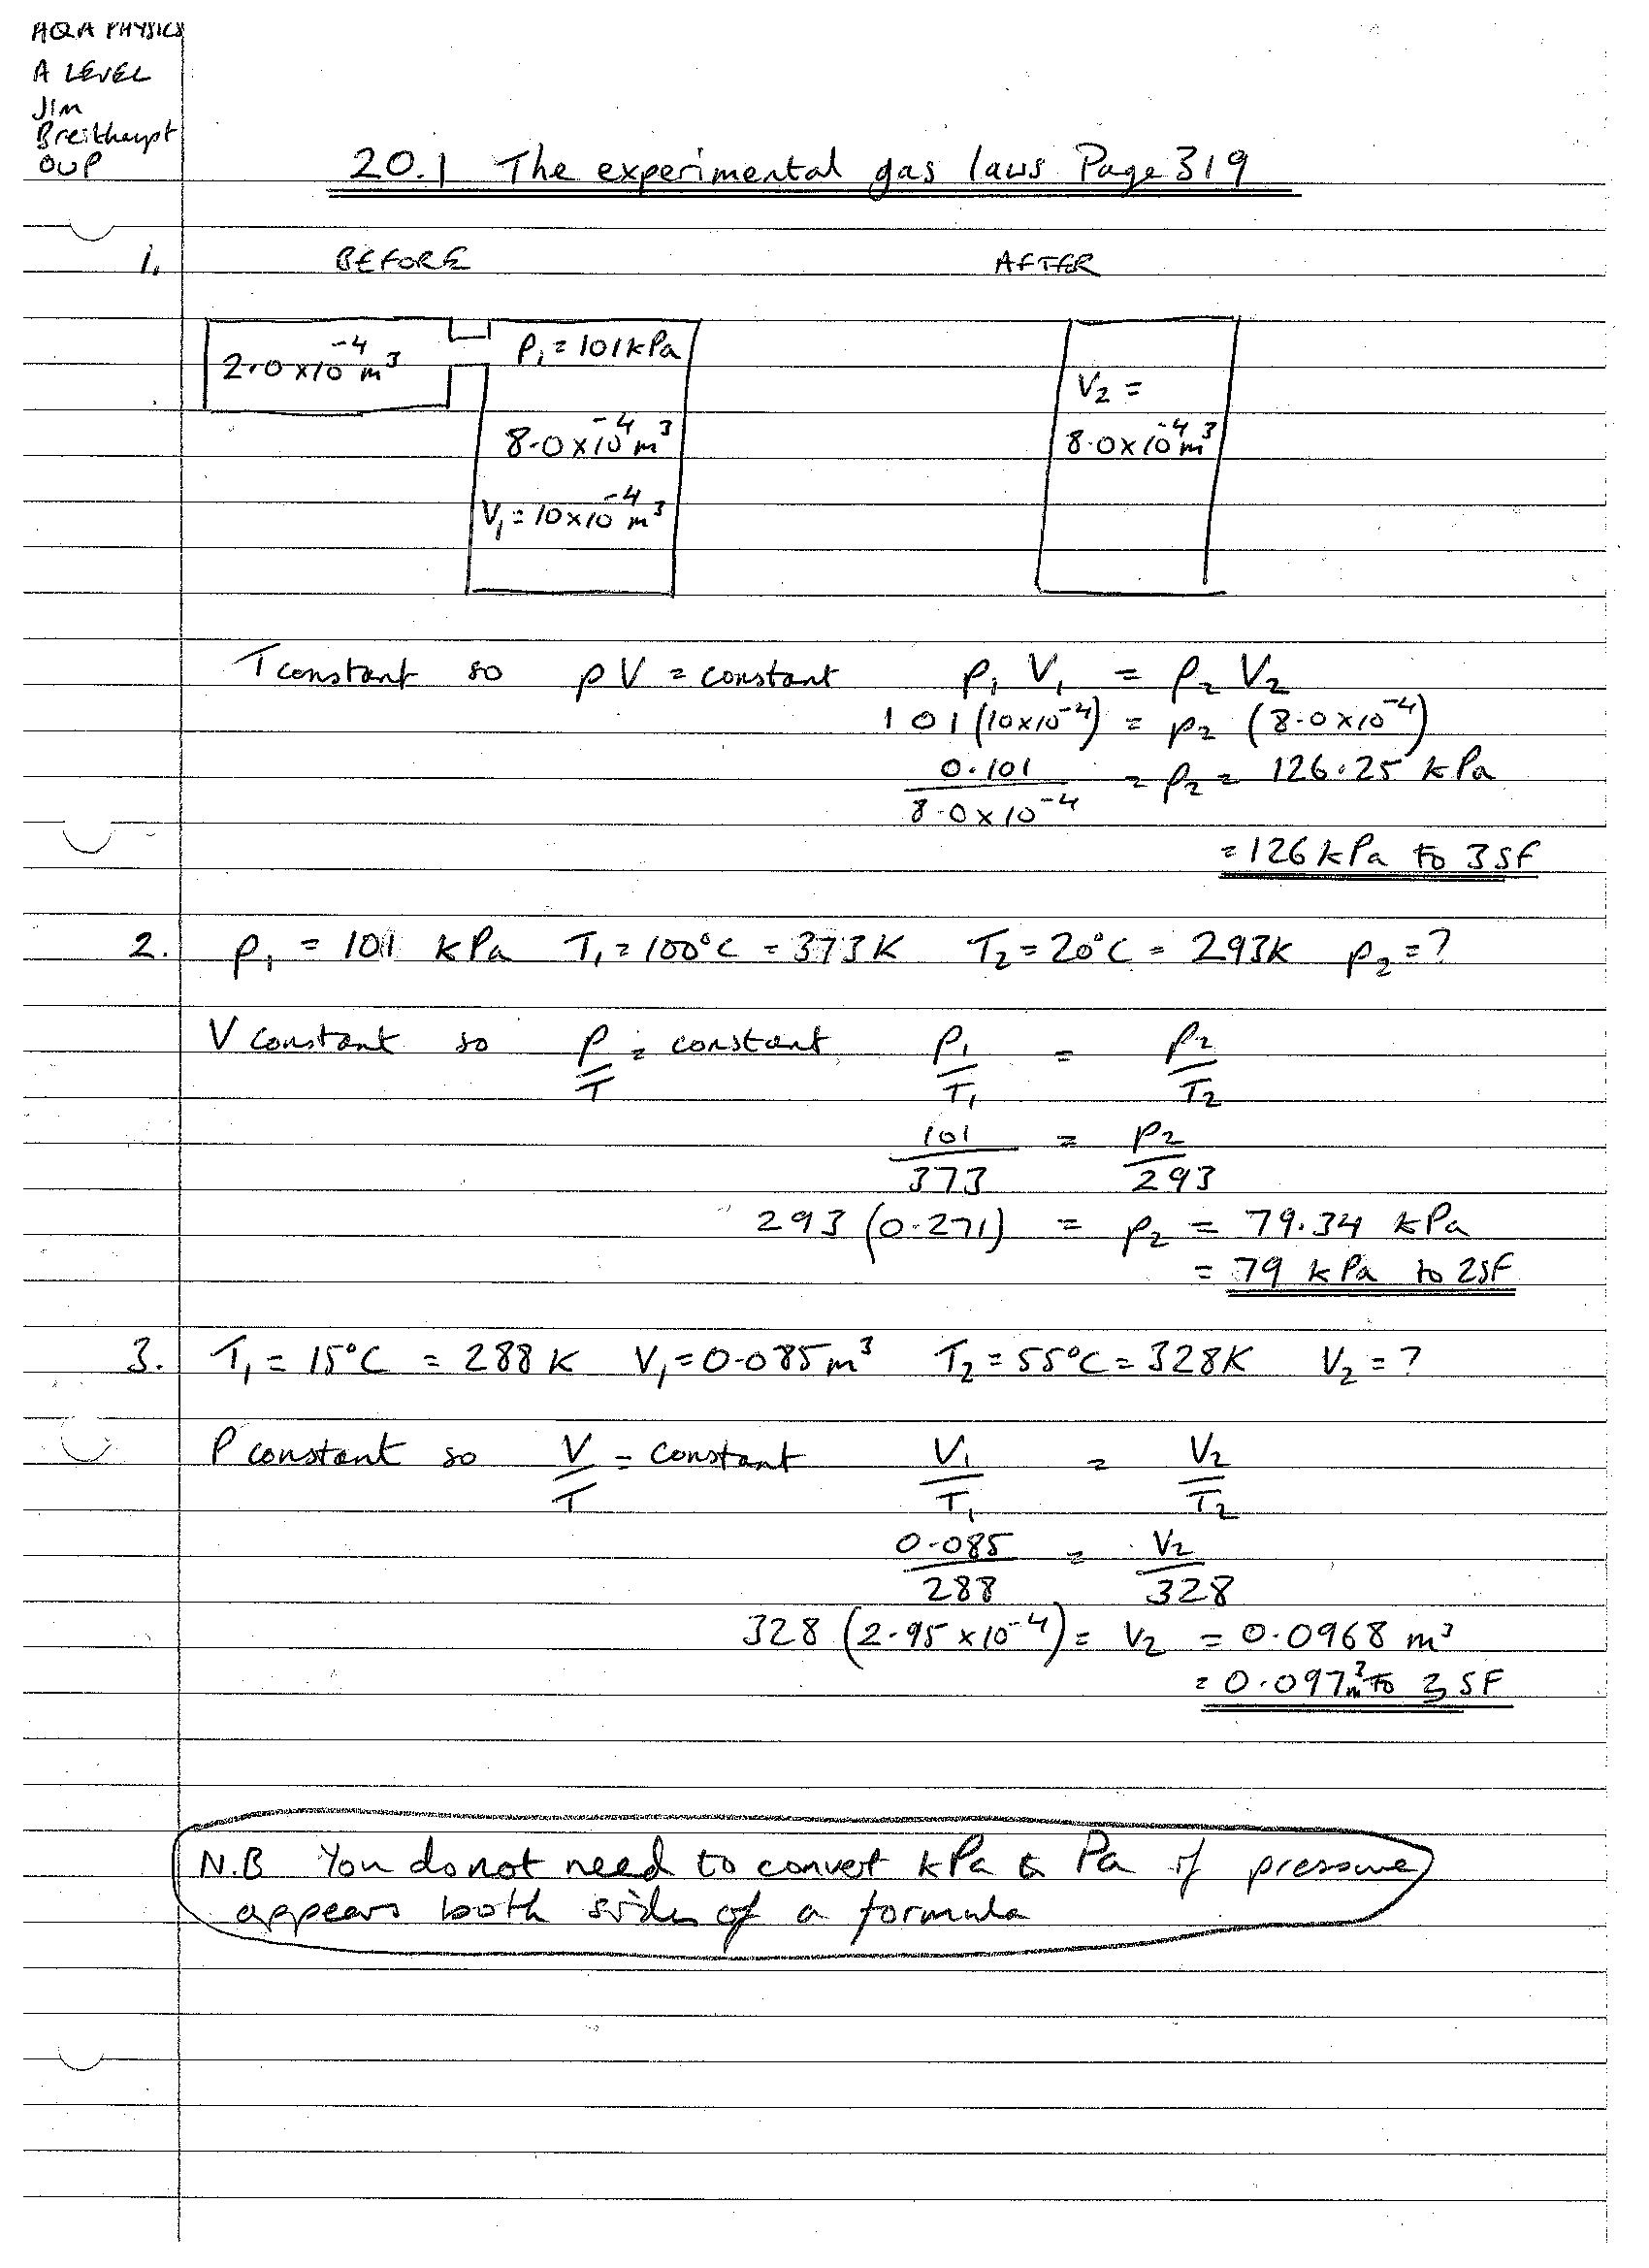 AQA PHYSICS
A LEVEL
JIM
Breithaupt
OUP
20.1 The experimental gas laws Page 319
1. BEFORE AFTER
2.0 x 10⁻⁴ m³ P₁ = 101 kPa
V₂ =
8.0 x 10⁻⁴ m³ 8.0 x 10⁻⁴ m³
V₁ = 10 x 10⁻⁴ m³
T constant so pV = constant p₁ V₁ = p₂ V₂
101 (10x10⁻⁴) = p₂ (8.0 x 10⁻⁴)
0.101 / 8.0 x 10⁻⁴ = p₂ = 126.25 kPa
= 126 kPa to 3 SF
2. p₁ = 101 kPa T₁ = 100°C = 373K T₂ = 20°C = 293K p₂ = ?
V constant so P/T = constant P₁/T₁ = P₂/T₂
101/373 = P₂/293
293 (0.271) = p₂ = 79.34 kPa
= 79 kPa to 2SF
3. T₁ = 15°C = 288 K V₁ = 0.085 m³ T₂ = 55°C = 328K V₂ = ?
P constant so V/T = constant V₁/T₁ = V₂/T₂
0.085/288 = V₂/328
328 (2.95 x 10⁻⁴) = V₂ = 0.0968 m³
= 0.097 m³ to 3 SF
N.B You do not need to convert kPa to Pa if pressure
appears both sides of a formula